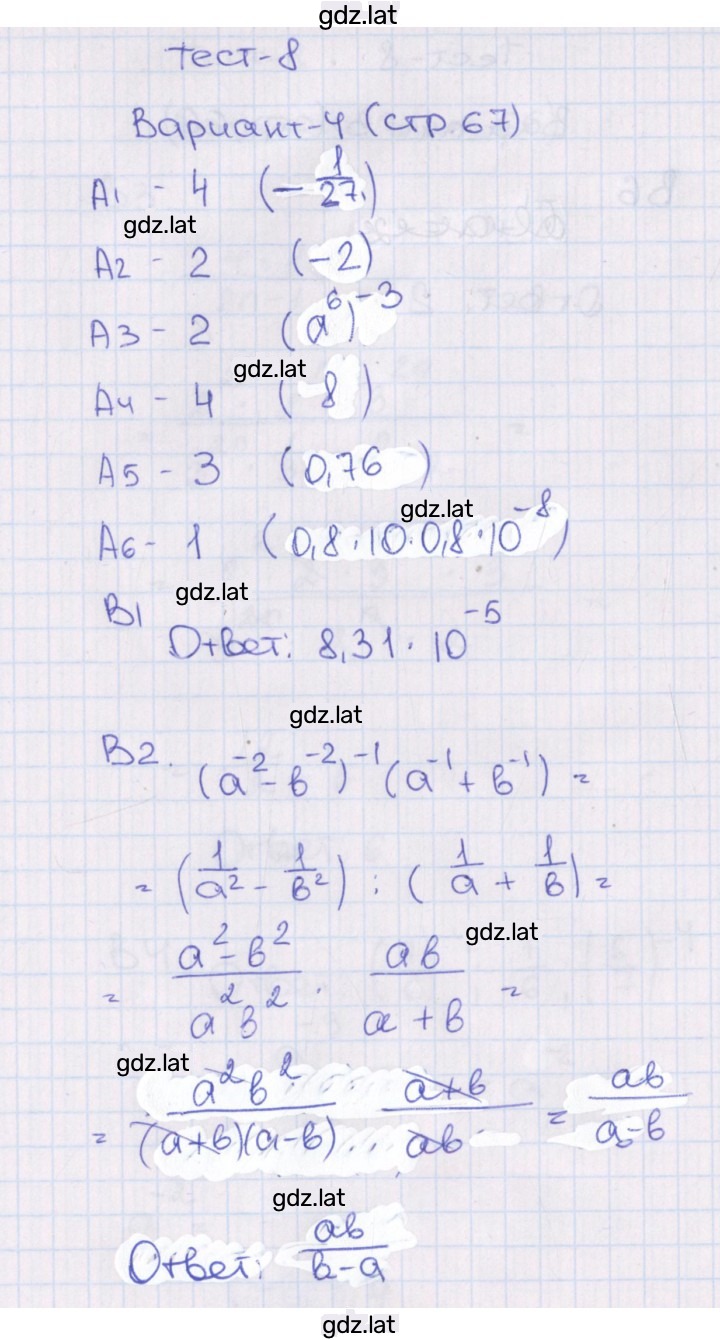 gdz.lat
тест-8
Вариант-4 (стр.67)
А1 - 4 (-1/27)
gdz.lat
А2 - 2 (-2)
А3 - 2 (a⁶)⁻³
gdz.lat
А4 - 4 (-8)
А5 - 3 (0,76)
gdz.lat
А6 - 1 (0,8·10·0,8·10⁻⁸)
gdz.lat
В1
Ответ: 8,31·10⁻⁵
gdz.lat
В2. (a⁻²-в⁻²)⁻¹(a⁻¹+в⁻¹) =
= (1/a² - 1/в²) : (1/a + 1/в) =
gdz.lat
= (a²-в²)/(a²в²) · ав/(а+в) =
gdz.lat
= a²в²/((а+в)(а-в)) · (а+в)/ав = ав/(а-в)
gdz.lat
Ответ: ав/(в-а)
gdz.lat